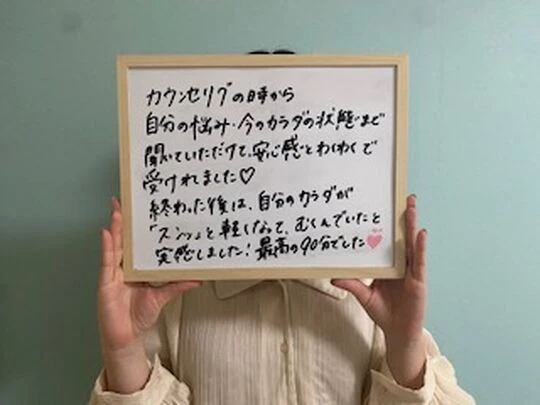 カウンセリグの時から
自分の悩み・今のカラダの状態まで
聞いていただけて、安心感とわくわくで
受けれました♡
終わった後は、自分のカラダが
「スンッ」と軽くなって、むくんでいたと
実感しました!最高の90分でした